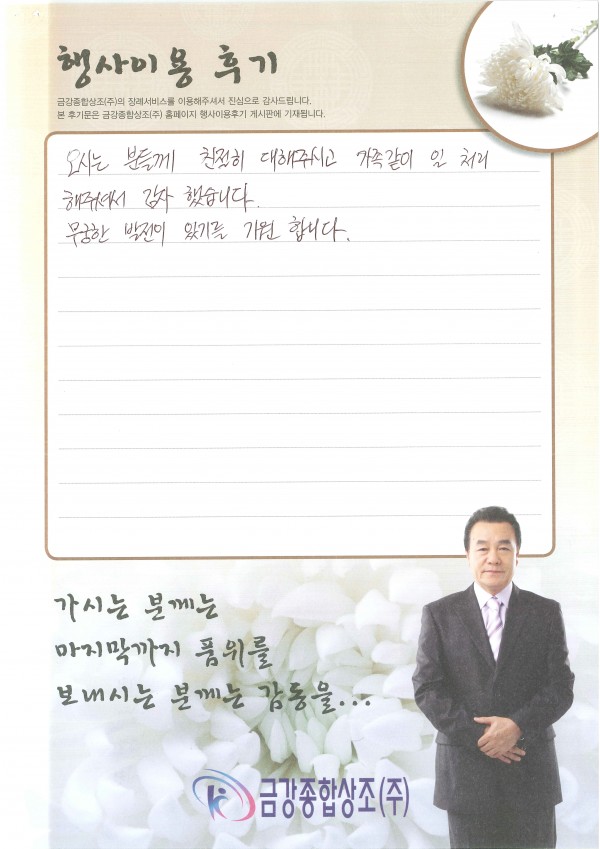 행사이용 후기
금강종합상조(주)의 장례서비스를 이용해주셔서 진심으로 감사드립니다.
본 후기문은 금강종합상조(주) 홈페이지 행사이용후기 게시판에 기재됩니다.
오시는 분들께 친절히 대해주시고 가족같이 일 처리
해주셔서 감사 했습니다.
무궁한 발전이 있기를 기원 합니다.
가시는 분께는
마지막까지 품위를
보내시는 분께는 감동을...
금강종합상조(주)